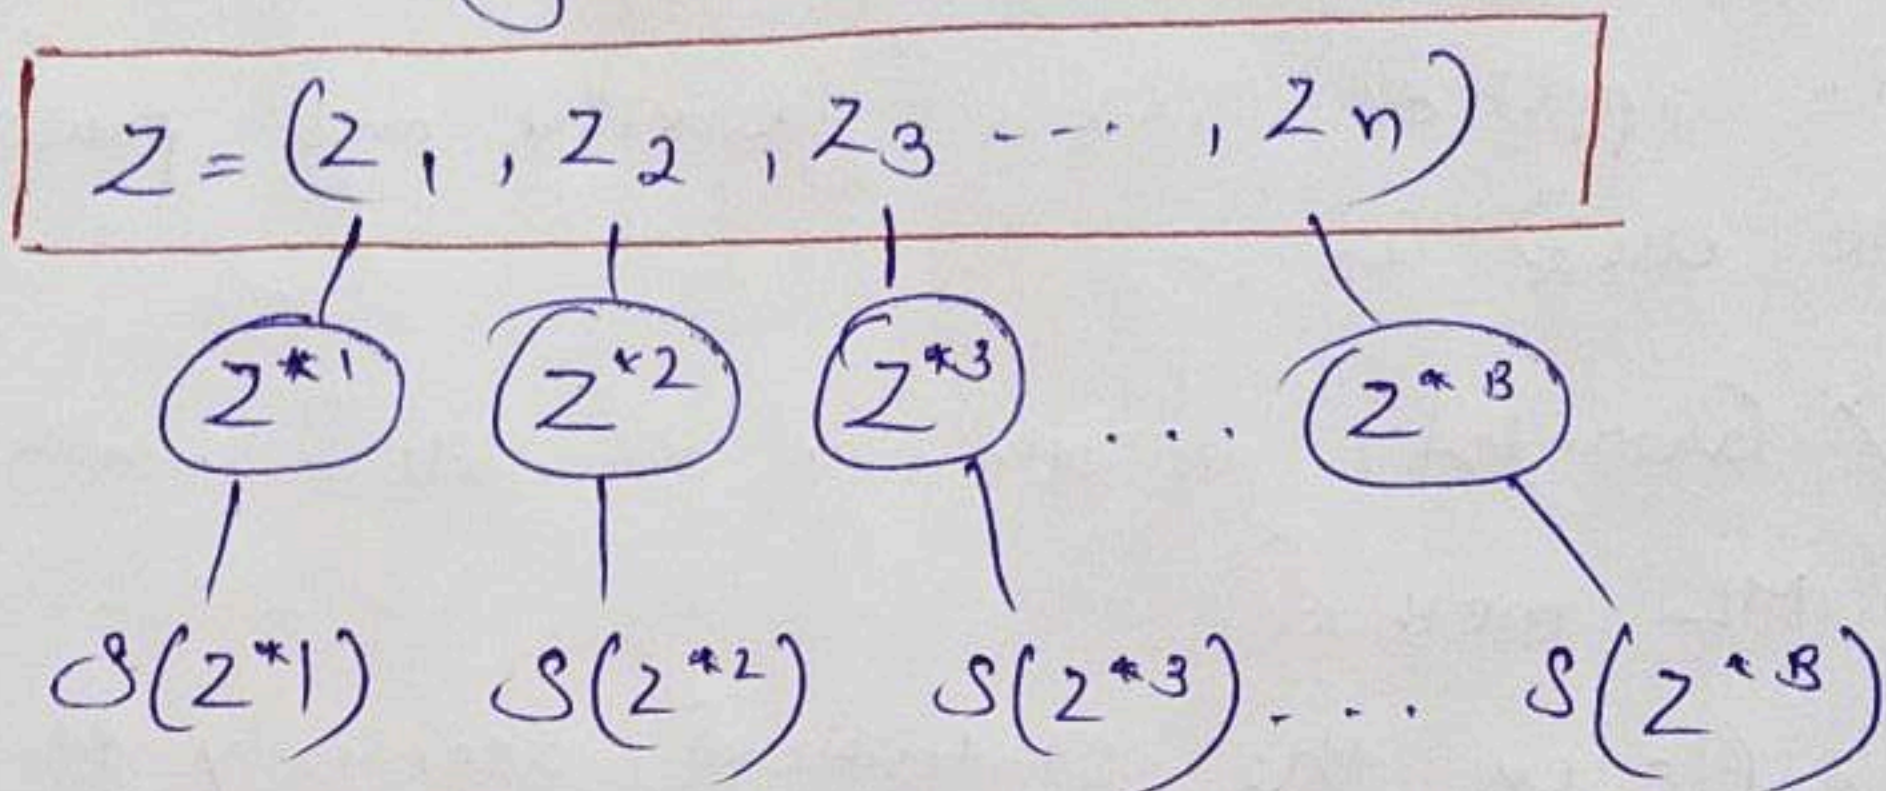 Z = (Z1, Z2, Z3 ---- , Zn)
Z*1 Z*2 Z*3 ... Z*B
S(Z*1) S(Z*2) S(Z*3) .... S(Z*B)